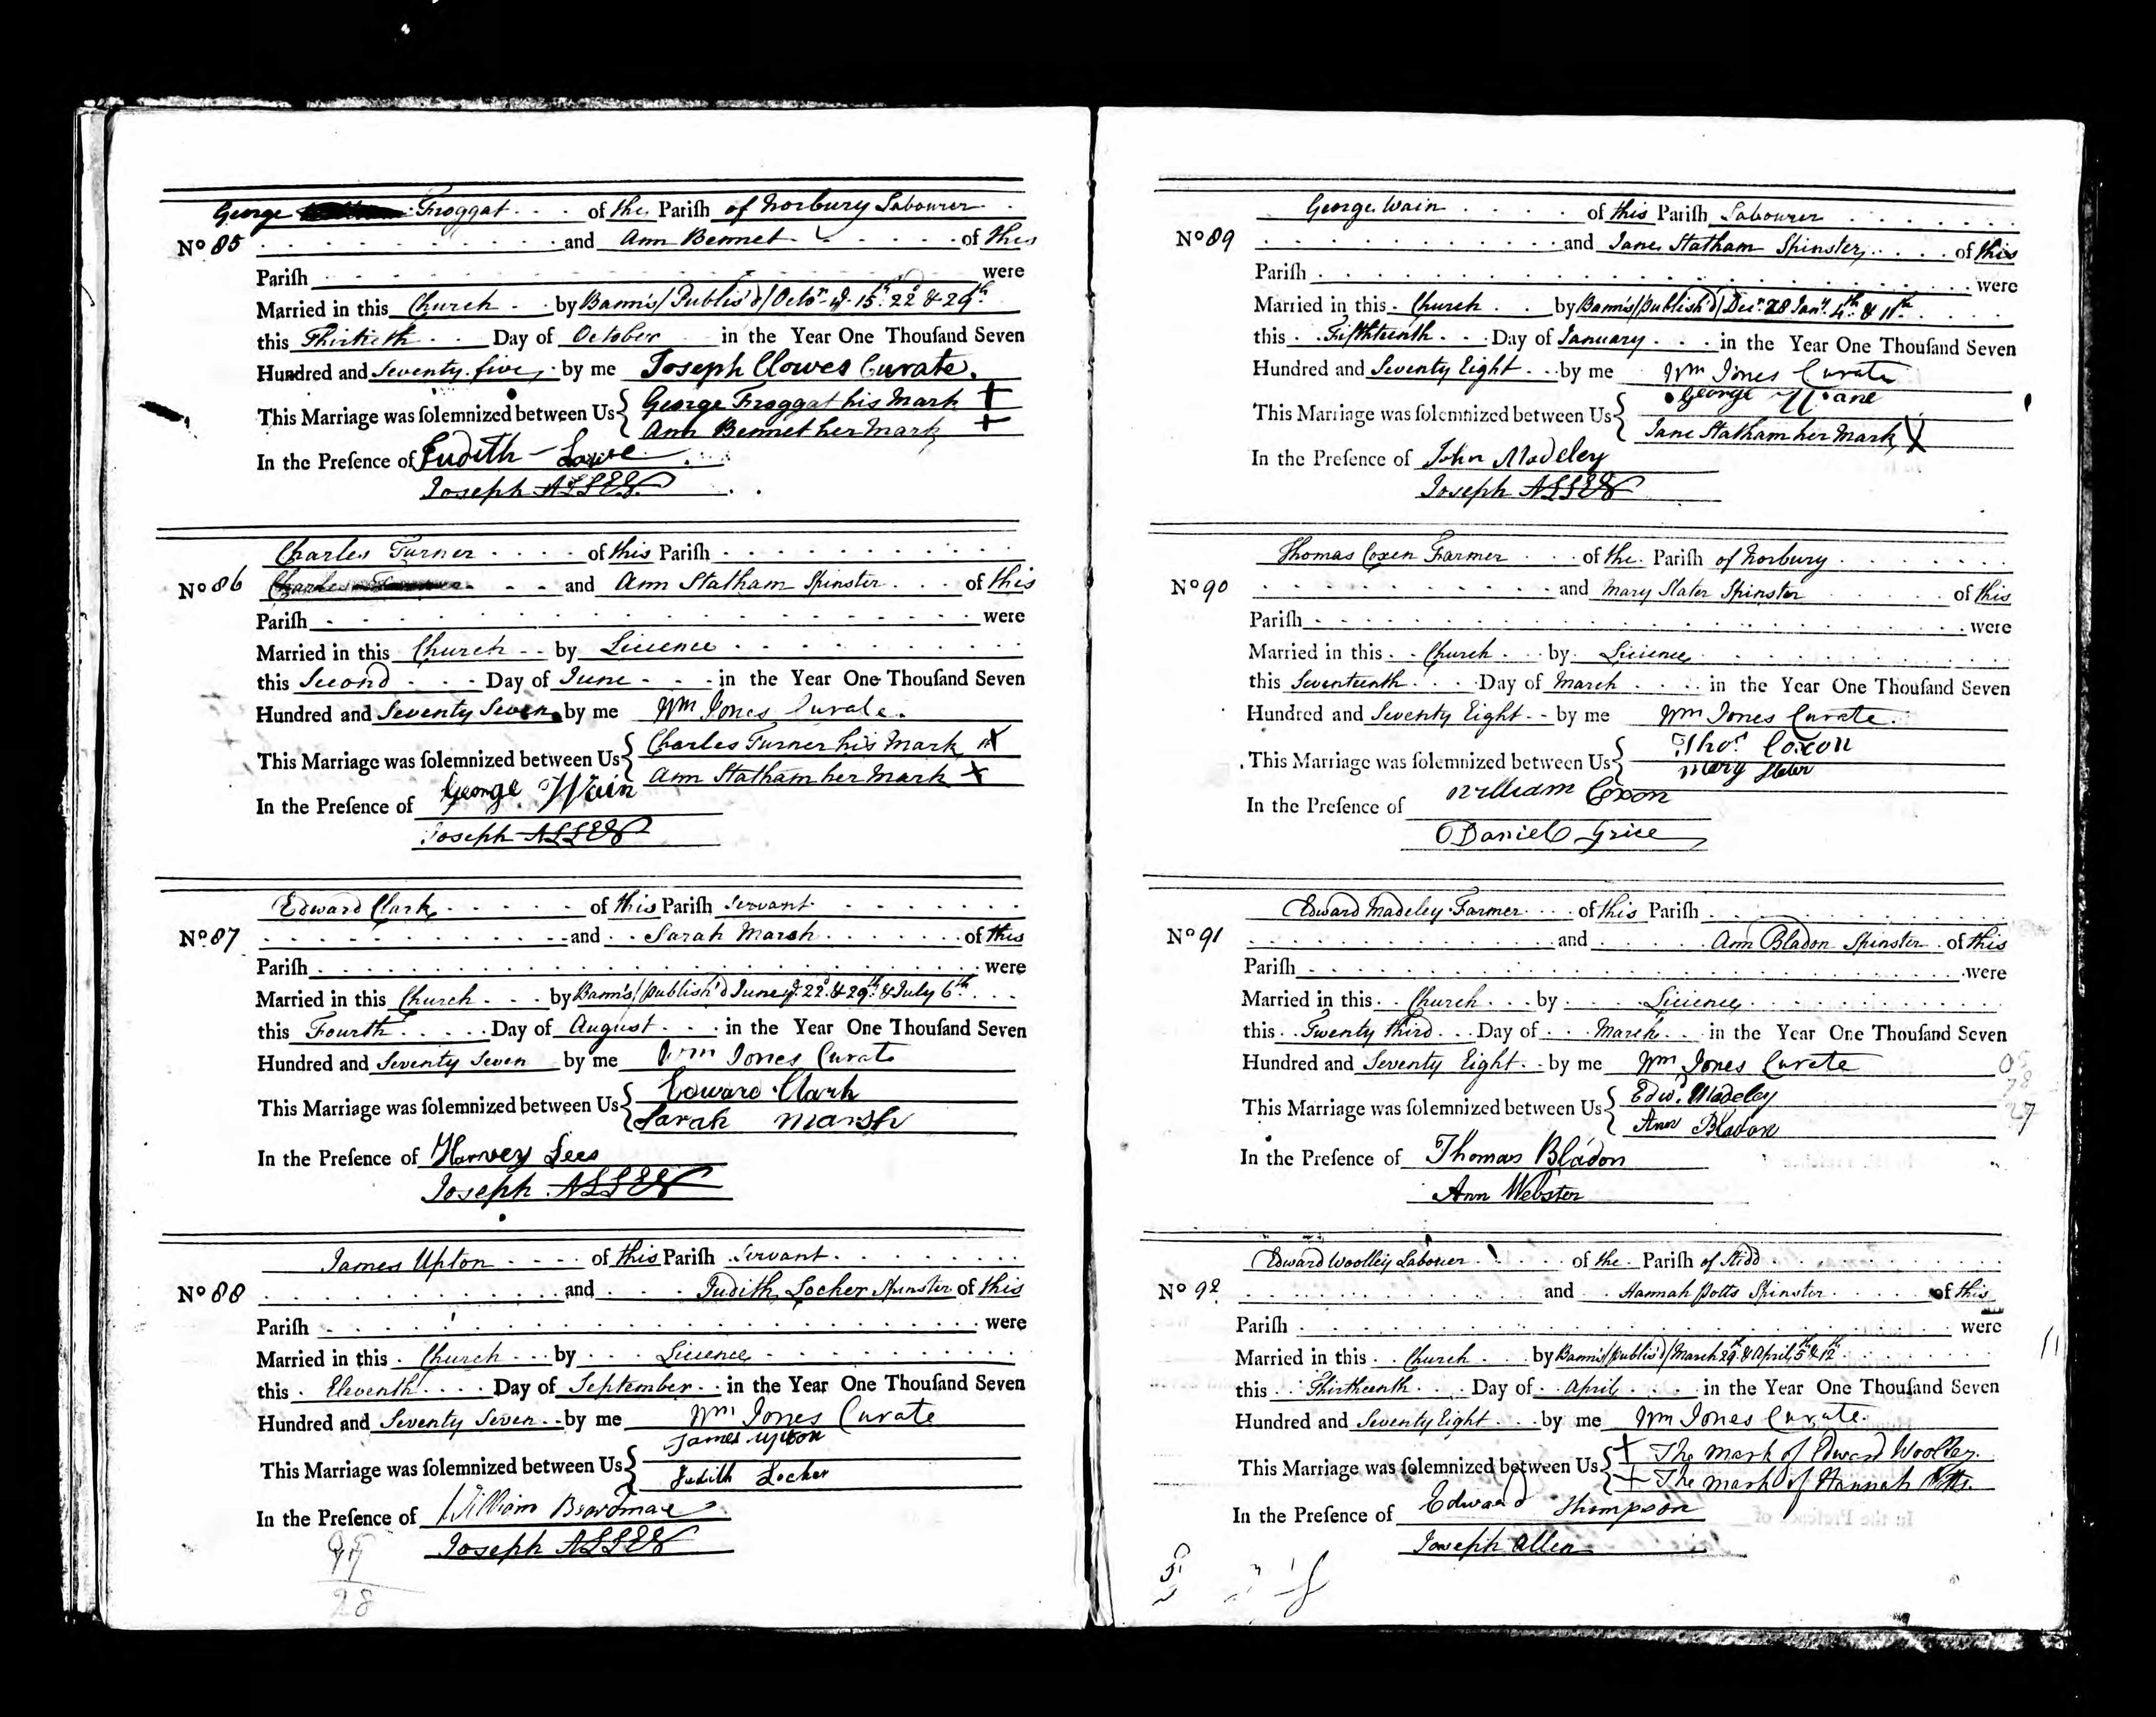 George Froggat of the Pariſh of Norbury Labourer
No 85 and Ann Bennet of this
Pariſh were
Married in this Church by Banns/Publis'd/Octor ye 15th 22d & 29th
this Thirtieth Day of October in the Year One Thouſand Seven
Hundred and Seventy five by me Joseph Clowes Curate.
This Marriage was ſolemnized between Us { George Froggat his Mark +
Ann Bennet her Mark +
In the Preſence of Judith
Joseph
Charles Turner of this Pariſh
No 86 Charles Turner and Ann Statham Spinster of this
Pariſh were
Married in this Church by Licience
this Second Day of June in the Year One Thouſand Seven
Hundred and Seventy Seven by me Wm Jones Curate.
This Marriage was ſolemnized between Us { Charles Turner his Mark X
Ann Statham her Mark X
In the Preſence of George Wain
Joseph
Edward Clark of this Pariſh Servant
No 87 and Sarah Marsh of this
Pariſh were
Married in this Church by Banns/publish'd June ye 22d & 29th & July 6th
this Fourth Day of August in the Year One Thouſand Seven
Hundred and Seventy Seven by me Wm Jones Curate
This Marriage was ſolemnized between Us { Edward Clark
Sarah Marsh
In the Preſence of Harvey Lees
Joseph
James Upton of this Pariſh Servant
No 88 and Judith Locker Spinster of this
Pariſh were
Married in this Church by Licience
this Eleventh Day of September in the Year One Thouſand Seven
Hundred and Seventy Seven by me Wm Jones Curate
This Marriage was ſolemnized between Us { James Upton
Judith Locker
In the Preſence of William
Joseph
28
George Wain of this Pariſh Labourer
No 89 and Jane Statham Spinster of this
Pariſh were
Married in this Church by Banns/publish'd/Decr 28 Jany 4th & 11th
this Fifthteenth Day of January in the Year One Thouſand Seven
Hundred and Seventy Eight by me Wm Jones Curate
This Marriage was ſolemnized between Us { George
Jane Statham her Mark X
In the Preſence of John Madeley
Joseph
Thomas Coxen Farmer of the Pariſh of Norbury
No 90 and Mary Slater Spinster of this
Pariſh were
Married in this Church by Licience
this Seventeenth Day of March in the Year One Thouſand Seven
Hundred and Seventy Eight by me Wm Jones Curate.
This Marriage was ſolemnized between Us { Thos Coxon
Mary Slater
In the Preſence of William Coxon
Daniel Grice
Edward Madeley Farmer of this Pariſh
No 91 and Ann Bladon Spinster of this
Pariſh were
Married in this Church by Licience
this Twenty third Day of March in the Year One Thouſand Seven
Hundred and Seventy Eight by me Wm Jones Curate
This Marriage was ſolemnized between Us { Edwd Madeley
Ann Bladon
In the Preſence of Thomas Bladon
Ann Webster
Edward Woolley Labouer of the Pariſh of Stidd
No 92 and Hannah Potts Spinster of this
Pariſh were
Married in this Church by Banns/publis'd/March 29th & April 5th & 12th
this Thirtheenth Day of April in the Year One Thouſand Seven
Hundred and Seventy Eight by me Wm Jones Curate.
This Marriage was ſolemnized between Us { + The Mark of Edward Woolley.
+ The Mark of Hannah Potts.
In the Preſence of Edward Thompson
Joseph Allen